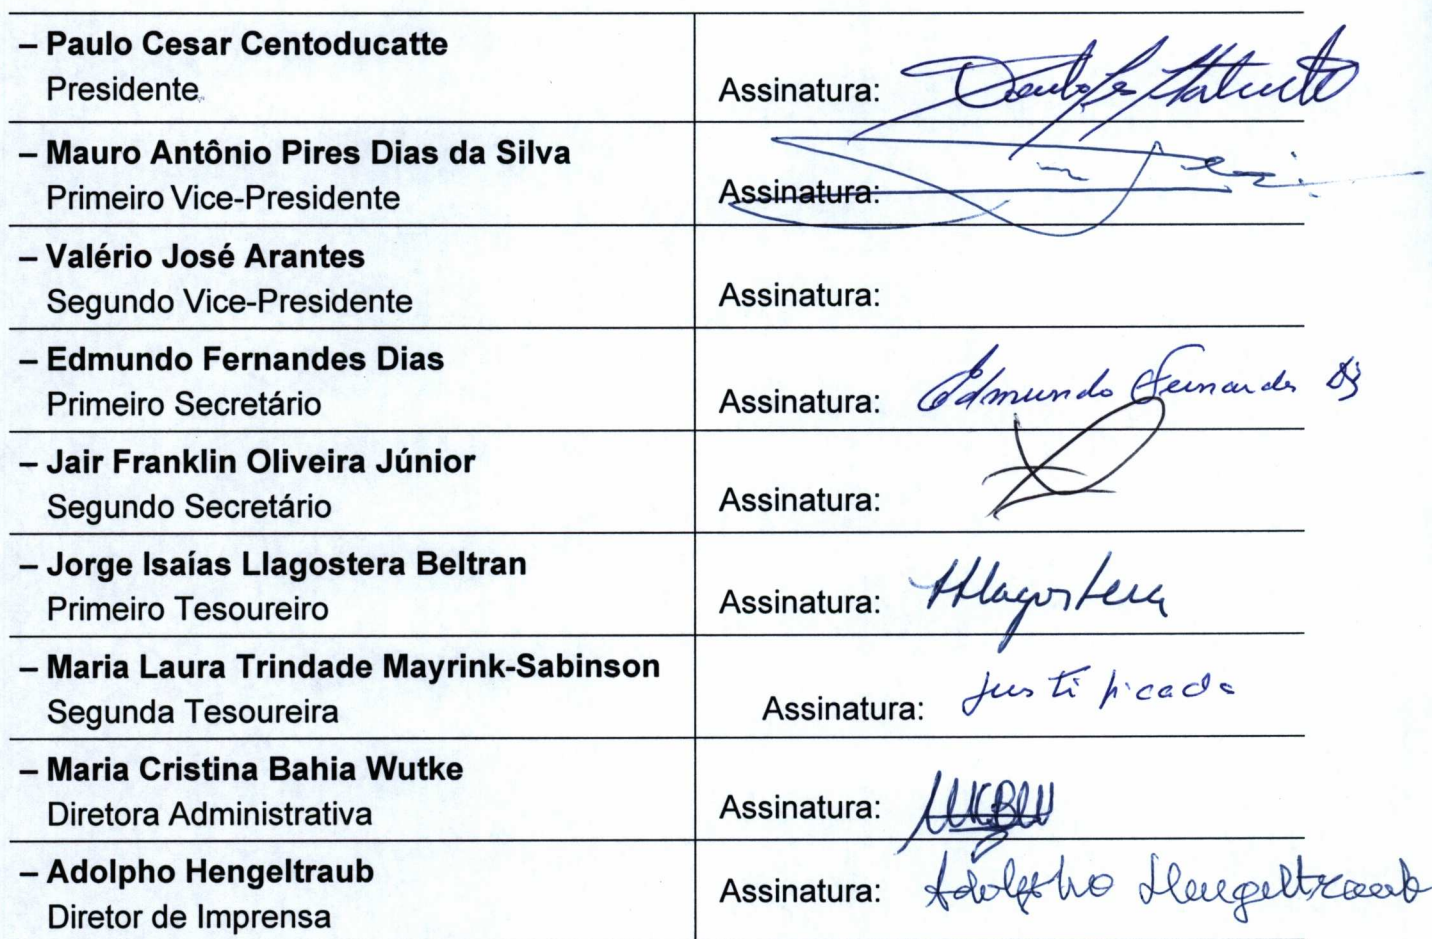 – Paulo Cesar Centoducatte
Presidente
Assinatura:
– Mauro Antônio Pires Dias da Silva
Primeiro Vice-Presidente
Assinatura:
– Valério José Arantes
Segundo Vice-Presidente
Assinatura:
– Edmundo Fernandes Dias
Primeiro Secretário
Assinatura: Edmundo Fernandes Ds
– Jair Franklin Oliveira Júnior
Segundo Secretário
Assinatura:
– Jorge Isaías Llagostera Beltran
Primeiro Tesoureiro
Assinatura: Llagostera
– Maria Laura Trindade Mayrink-Sabinson
Segunda Tesoureira
Assinatura: justificada
– Maria Cristina Bahia Wutke
Diretora Administrativa
Assinatura: MCBW
– Adolpho Hengeltraub
Diretor de Imprensa
Assinatura: Adolpho Hengeltraub